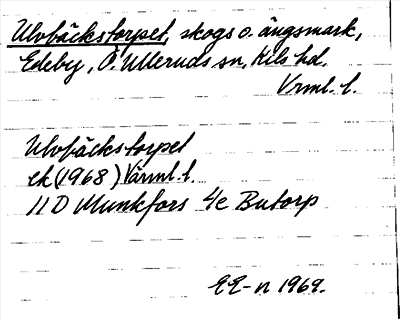 Ulvbäckstorpet, skogs o. ängsmark,
Edeby, Ö. Ulleruds sn, Kils hd.
Vrml. l.
Ulvbäckstorpet
ek (1968) Värml. l.
11 D Munkfors 4e Butorp
EE-n 1969.